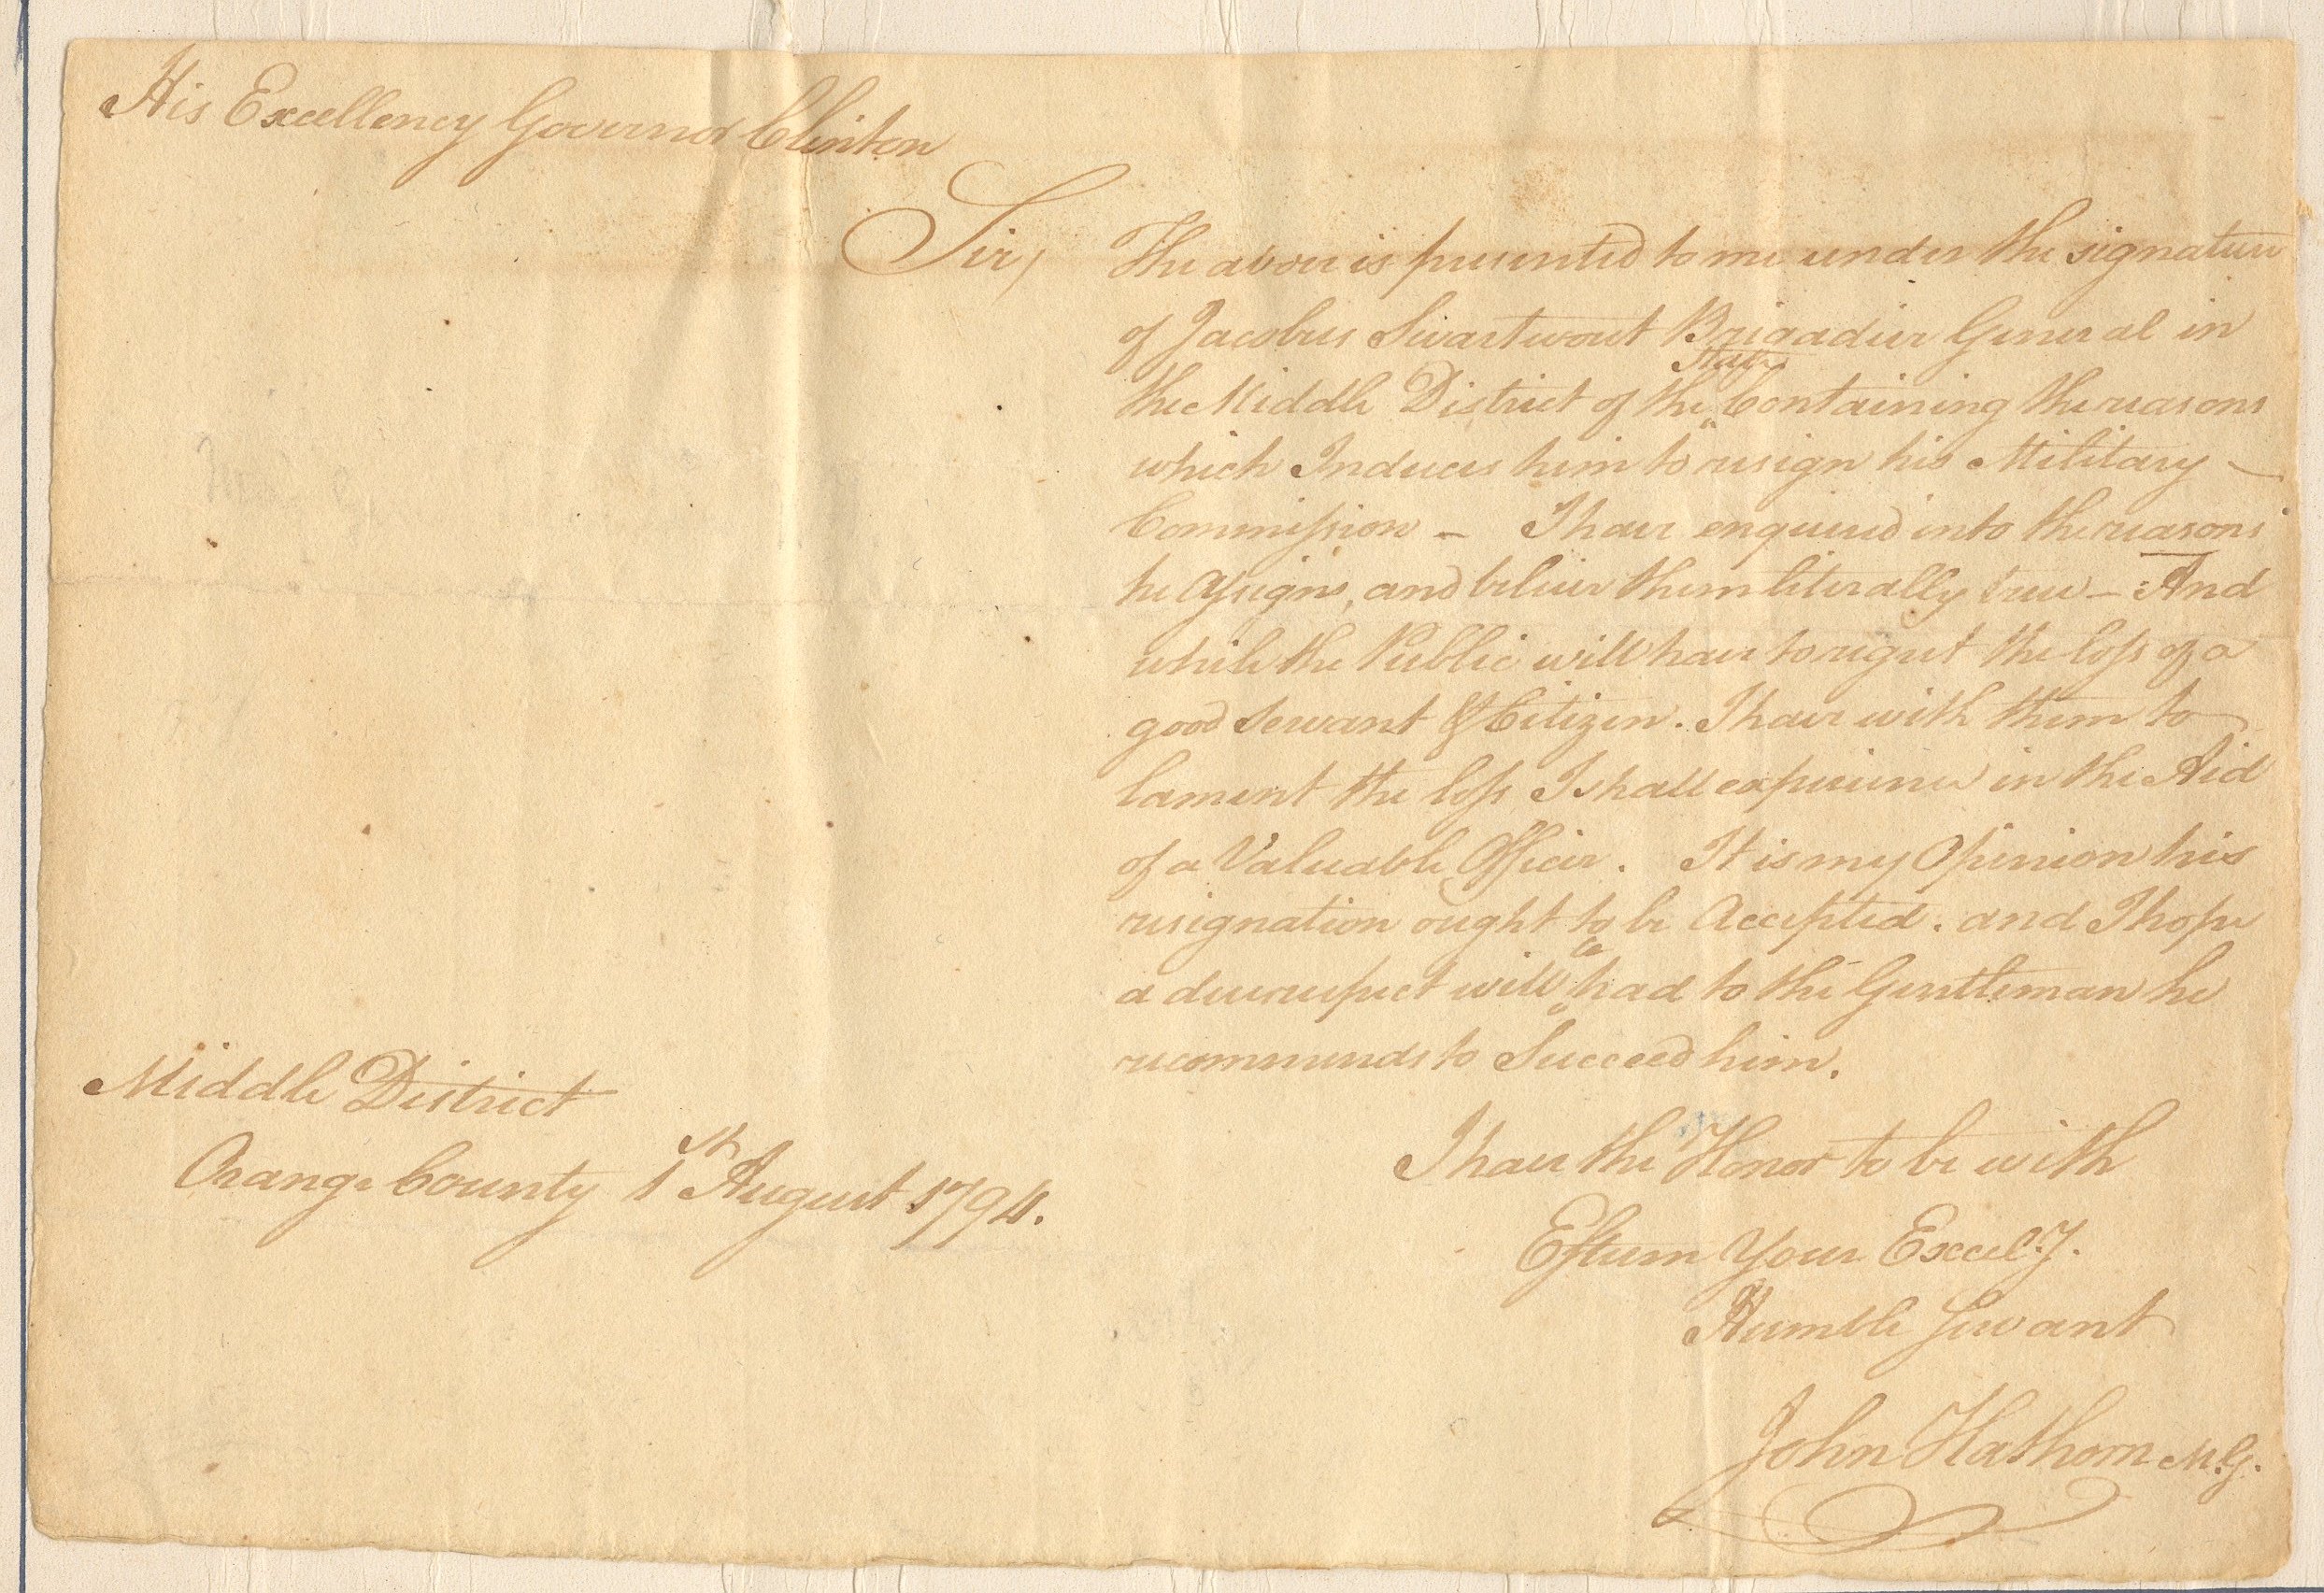 His Excellency Governor Clinton
Sir, The above is presented to me under the signature
of Jacobus Swartwout Brigadier General in
the Middle District of the State Containing the reasons
which Induces him to resign his Military –
Commission – I have enquired into the reasons
he Assigns, and believe them literally true – And
while the Public will have to regret the loss of a
good Servant & Citizen. I have with them to
lament the loss I shall experience in the Aid
of a Valuable Officer. It is my Opinion his
resignation ought to be Accepted. and I hope
a due respect will be had to the Gentleman he
recommends to Succeed him.
Middle District
Orange County 1st August 1794.
I have the Honor to be with
Esteem Your Excel.y.
Humble Servant
John Hathorn M.G.